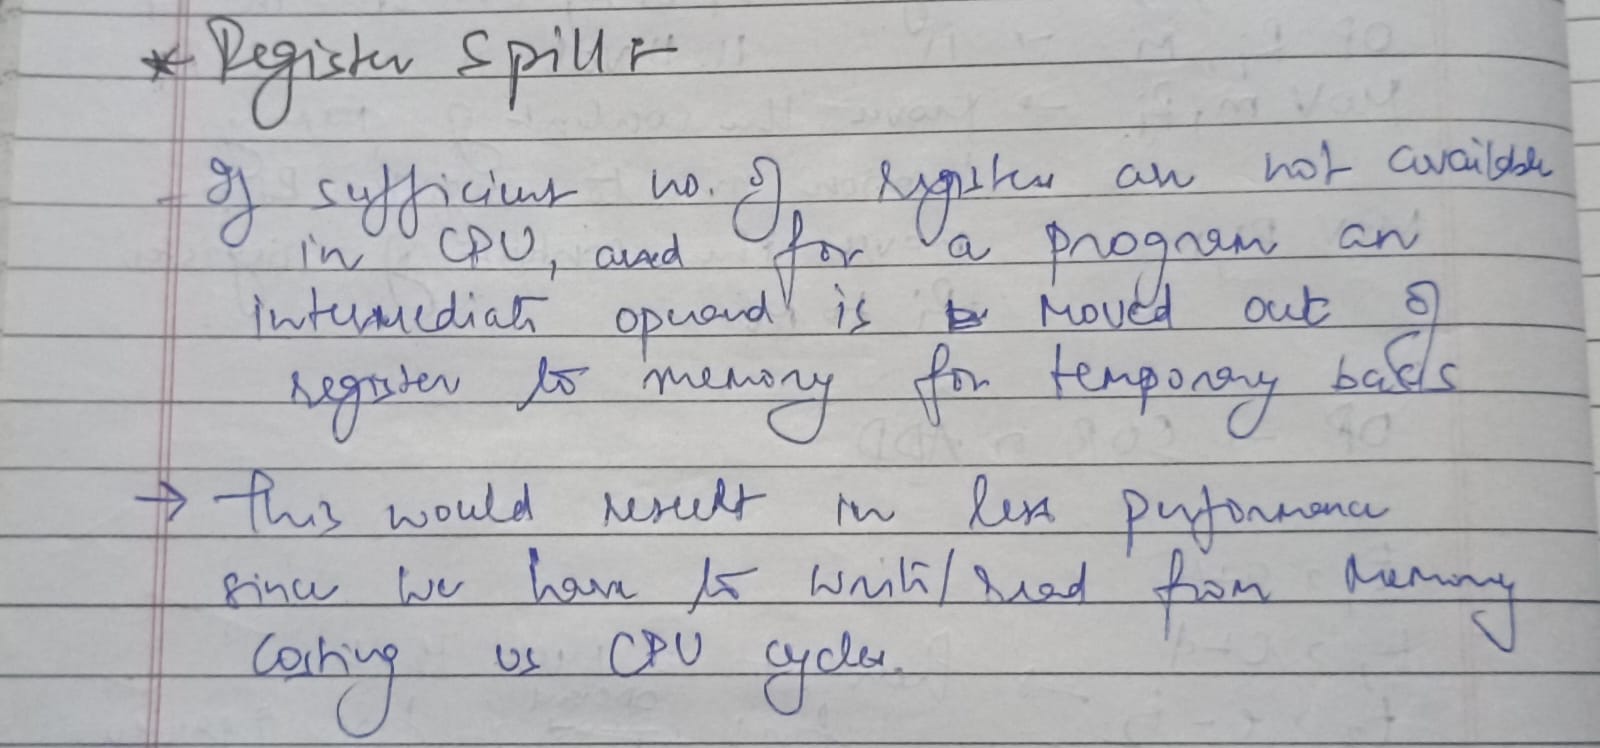 * Register Spill :-
- If sufficient no. of register are not available
in CPU, and for a program an
intermediate operand is moved out of
register to memory for temporary basis
→ this would result in less performance
since we have to write/read from memory
costing us CPU cycles.